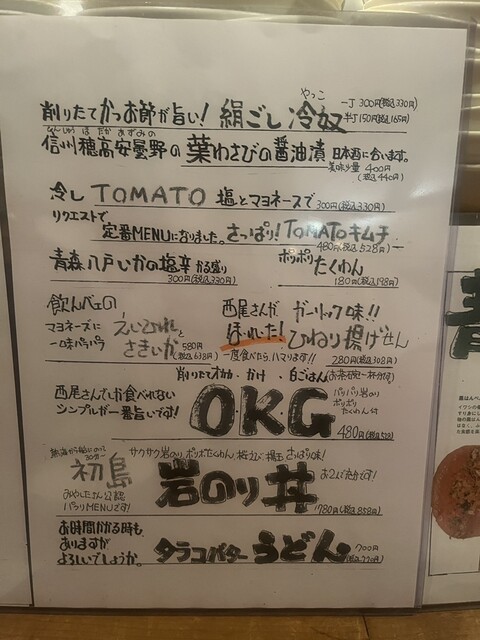 やっこ
削りたてかつお節が旨い! 絹ごし冷奴 一丁300円(税込330)
半丁150円(税込165円)
しんしゅう ほ だか あずみの
信州穂高安曇野の葉わさびの醤油漬 日本酒に合います。
美味少量 400円
(税込440円)
冷し TOMATO 塩とマヨネーズで 300円(税込330)
リクエストで
定番MENUになりました。さっぱり! TOMATOキムチ
480円(税込528円)
青森八戸いかの塩辛 かる盛り
300円(税込330)
ポリポリ
たくわん
180円(税込198円)
飲んべェの
マヨネーズに
一味パラパラ
えいひれと
さきいか 580円
(税込638円)
西尾さんが ガーリック味!!
ほれた! ひねり揚げせん
一度食べたら、ハマります!! 280円(税込308円)
西尾さんでしか食べれない
シンプルが一番旨いです!
削りたてオカカ・かけ・白ごはん(お茶碗一杯分です)
OKG
パリパリ岩のり
ポリポリ
たくわん付
480円(税込528)
熱海から船にのって
30分
初島
みやした丼公認
パクリMENUです!
サクサク岩のり、ポリポリたくわん、桜えび、揚玉 さっぱり味!
岩のり丼
780円(税込858円)
お時間かかる時も
ありますが
よろしいでしょうか。
タラコバターうどん 700円
(税込770円)